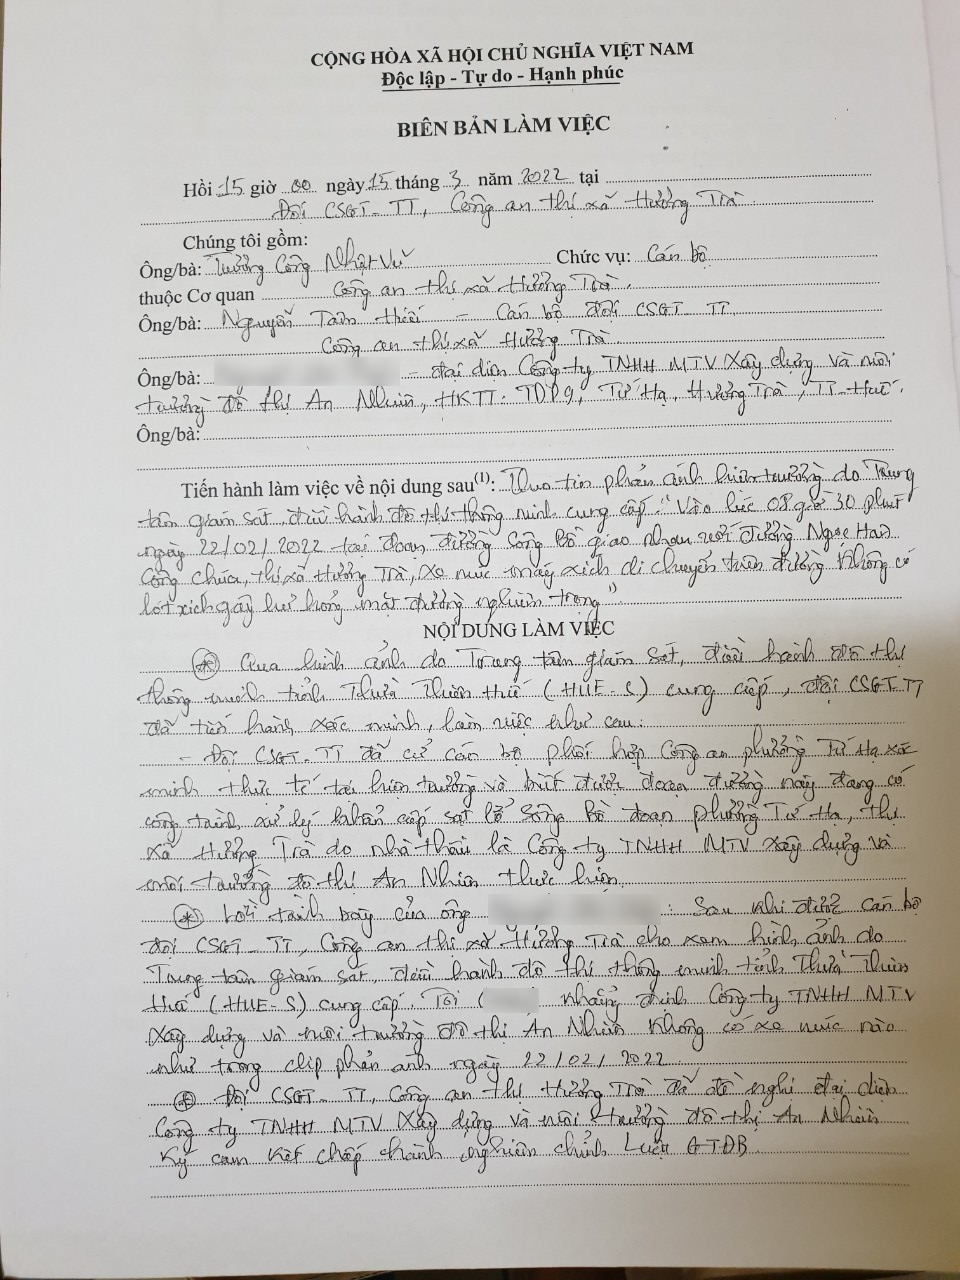 CỘNG HÒA XÃ HỘI CHỦ NGHĨA VIỆT NAM
Độc lập - Tự do - Hạnh phúc
BIÊN BẢN LÀM VIỆC
Hồi 15 giờ 00 ngày 15 tháng 3 năm 2022 tại
Đội CSGT-TT, Công an thị xã Hương Trà.
Chúng tôi gồm:
Ông/bà: Trương Công Nhật Vũ Chức vụ: Cán bộ
thuộc Cơ quan Công an thị xã Hương Trà.
Ông/bà: Nguyễn Tấn - Cán bộ đội CSGT-TT
Công an thị xã Hương Trà
Ông/bà: - đại diện Công ty TNHH MTV Xây dựng và môi
trường đô thị An Nhiên, HKTT: TDP9, Tứ Hạ, Hương Trà, TT-Huế.
Ông/bà:
Tiến hành làm việc về nội dung sau(1): Qua tin phản ánh hiện trường do Trung
tâm giám sát, điều hành đô thị thông minh cung cấp: "Vào lúc 08 giờ 30 phút
ngày 22/02/2022 tại đoạn đường Sông Bồ giao nhau với đường Ngọc Hân
Công chúa, thị xã Hương Trà, xe múc máy xích di chuyển trên đường không có
lót xích gây hư hỏng mặt đường nghiêm trọng".
NỘI DUNG LÀM VIỆC
* Qua hình ảnh do Trung tâm giám sát, điều hành đô thị
thông minh tỉnh Thừa Thiên Huế (HUE-S) cung cấp, đội CSGT-TT
đã tiến hành xác minh, làm việc như sau:
- Đội CSGT-TT đã cử cán bộ phối hợp Công an phường Tứ Hạ xác
minh thực tế tại hiện trường và biết được đoạn đường này đang có
công trình xử lý khẩn cấp sạt lở Sông Bồ đoạn phường Tứ Hạ, thị
xã Hương Trà do nhà thầu là Công ty TNHH MTV Xây dựng và
môi trường đô thị An Nhiên thực hiện.
* Lời trình bày của ông : Sau khi được cán bộ
đội CSGT-TT, Công an thị xã Hương Trà cho xem hình ảnh do
Trung tâm giám sát, điều hành đô thị thông minh tỉnh Thừa Thiên
Huế (HUE-S) cung cấp. Tôi ( khẳng định Công ty TNHH MTV
Xây dựng và môi trường đô thị An Nhiên không có xe múc nào
như trong clip phản ánh ngày 22/02/2022.
* Đội CSGT-TT, Công an thị Hương Trà đã đề nghị đại diện
Công ty TNHH MTV Xây dựng và môi trường đô thị An Nhiên
Ký cam kết chấp hành nghiêm chỉnh Luật GTĐB.